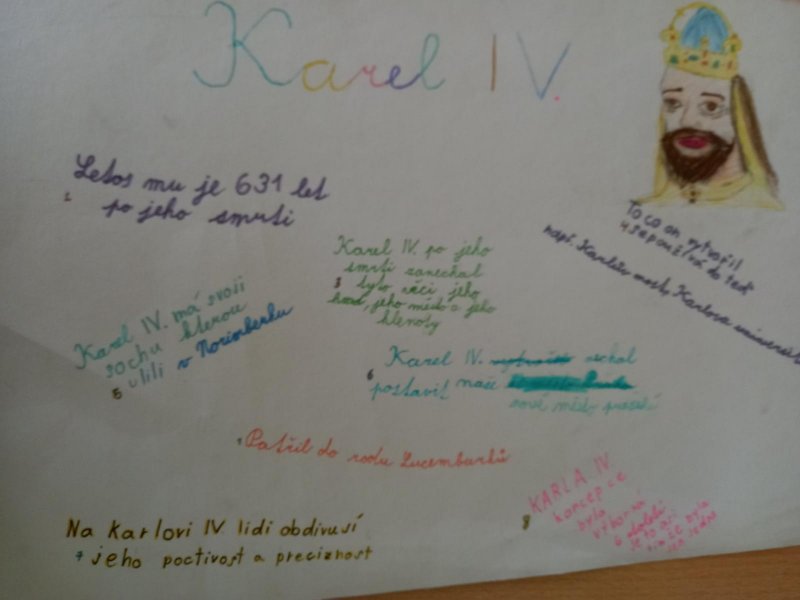 Karel IV.
Letos mu je 631 let
po jeho smrti
To co on vytvořil
4 se používá do teď
např. Karlův most, Karlova univerzita
Karel IV. po jeho
smrti zanechal
3 tyto věci jeho
hrad, jeho město a jeho
klenoty
Karel IV. má svoji
sochu kterou
5 ulili v Norimberku
Karel IV. nechal
6 postavit naše
nové město pražské
1 Patřil do rodu Lucemburků
KARLA IV.
koncepce
8 byla
výborná
Na Karlovi IV. lidi obdivují
7 jeho poctivost a preciznost